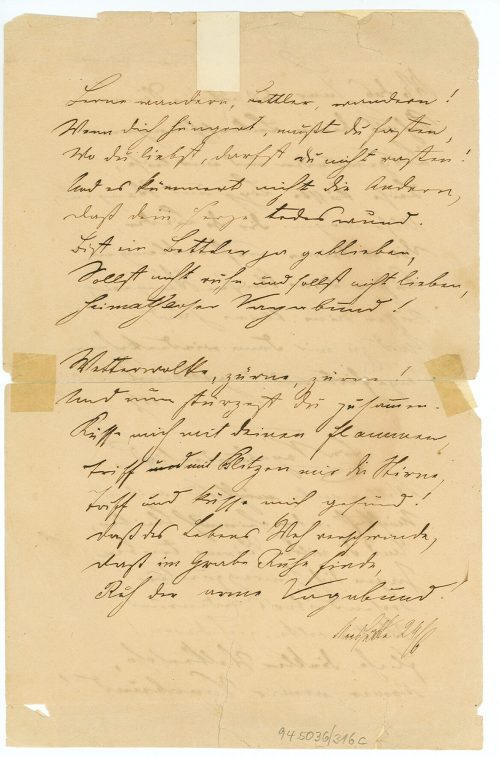 Lerne wandern, Bettler, wandern!
Wenn dich hungert, mußt du fasten,
Wo du liebst, darfst du nicht rasten!
Und es kümmert nicht die Andern,
Daß dein Herze todeswund.
Bist ein Bettler ja geblieben,
Sollst nicht ruhn und sollst nicht lieben,
Heimathloser Vagabund!
Wetterwolke, zürne, zürne!
Und nun stürzest du zusammen.
Küsse mich mit deinen Flammen,
Triff und mit Blitzen mir die Stirne,
Triff und küsse mich gesund!
Daß des Lebens Weh verschwinde,
Daß im Grabe Ruhe finde,
Ruh der arme Vagabund!
29/6
94.5036/316c